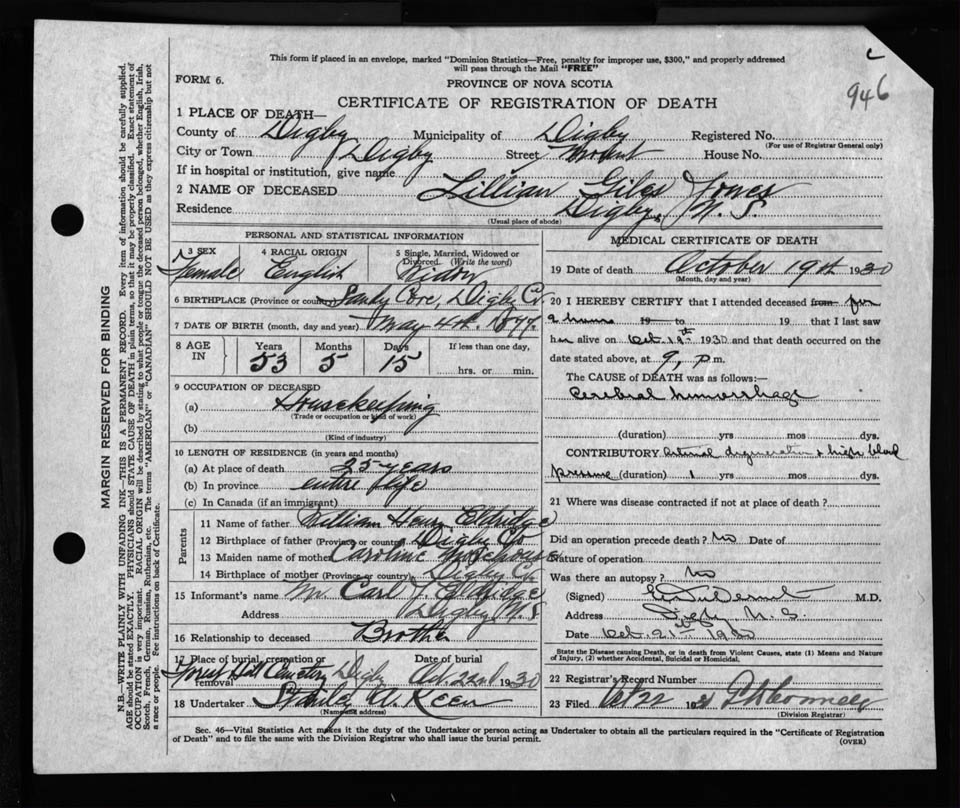 This form if placed in an envelope, marked "Dominion Statistics—Free, penalty for improper use, $300," and properly addressed
will pass through the Mail "FREE"
946
FORM 6.
PROVINCE OF NOVA SCOTIA
CERTIFICATE OF REGISTRATION OF DEATH
1 PLACE OF DEATH—
County of Digby Municipality of Digby Registered No.
(For use of Registrar General only)
City or Town Digby Street House No.
If in hospital or institution, give name
2 NAME OF DECEASED Lillian Giles Jones
Residence Digby, N. S.
(Usual place of abode)
PERSONAL AND STATISTICAL INFORMATION
3 SEX 4 RACIAL ORIGIN 5 Single, Married, Widowed or Divorced. (Write the word)
Female English Widow
6 BIRTHPLACE (Province or country) Sandy Cove, Digby Co.
7 DATE OF BIRTH (month, day and year) May 4th 1877.
8 AGE IN Years Months Days If less than one day,
53 5 15 hrs. or min.
9 OCCUPATION OF DECEASED
(a) Housekeeping
(Trade or occupation or kind of work)
(b)
(Kind of industry)
10 LENGTH OF RESIDENCE (in years and months)
(a) At place of death 25 years
(b) In province entire life
(c) In Canada (if an immigrant)
Parents
11 Name of father William Henry Eldridge
12 Birthplace of father (Province or country) Digby Co
13 Maiden name of mother Caroline Morehouse
14 Birthplace of mother (Province or country) Digby Co.
15 Informant's name Mr. Carl J. Eldridge
Address Digby N.S
16 Relationship to deceased Brother
17 Place of burial, cremation or removal Date of burial
Forest Hill Cemetery Digby Oct. 22nd 1930
18 Undertaker Stanley W. Keen
(Name and address)
MEDICAL CERTIFICATE OF DEATH
19 Date of death October 19th 1930
(Month, day and year)
20 I HEREBY CERTIFY that I attended deceased from for
2 hours 19 to 19 that I last saw
her alive on Oct. 19th 1930 and that death occurred on the
date stated above, at 9, p.m.
The CAUSE of DEATH was as follows:—
Cerebral hemorrhage
(duration) yrs mos dys.
CONTRIBUTORY arterial degeneration & high blood
pressure (duration) 1 yrs mos dys.
21 Where was disease contracted if not at place of death?
Did an operation precede death? no Date of
Nature of operation
Was there an autopsy? no
(Signed) M.D.
Address Digby N. S.
Date Oct. 21st 1930
State the Disease causing Death, or in death from Violent Causes, state (1) Means and Nature
of Injury, (2) whether Accidental, Suicidal or Homicidal.
22 Registrar's Record Number
23 Filed Oct 22
(Division Registrar)
Sec. 46—Vital Statistics Act makes it the duty of the Undertaker or person acting as Undertaker to obtain all the particulars required in the "Certificate of Registration
of Death" and to file the same with the Division Registrar who shall issue the burial permit.
(OVER)
MARGIN RESERVED FOR BINDING
N.B.—WRITE PLAINLY WITH UNFADING INK—THIS IS A PERMANENT RECORD. Every item of information should be carefully supplied.
AGE should be stated EXACTLY. PHYSICIANS should STATE CAUSE OF DEATH in plain terms, so that it may be properly classified. Exact statement of
OCCUPATION is very important. RACIAL ORIGIN will be described by stating to what people or tongue the deceased person belonged, whether English, Irish,
Scotch, French, German, Russian, Ruthenian, etc. The terms "AMERICAN" or "CANADIAN" SHOULD NOT BE USED as they express citizenship but not
a race or people. See instructions on back of Certificate.